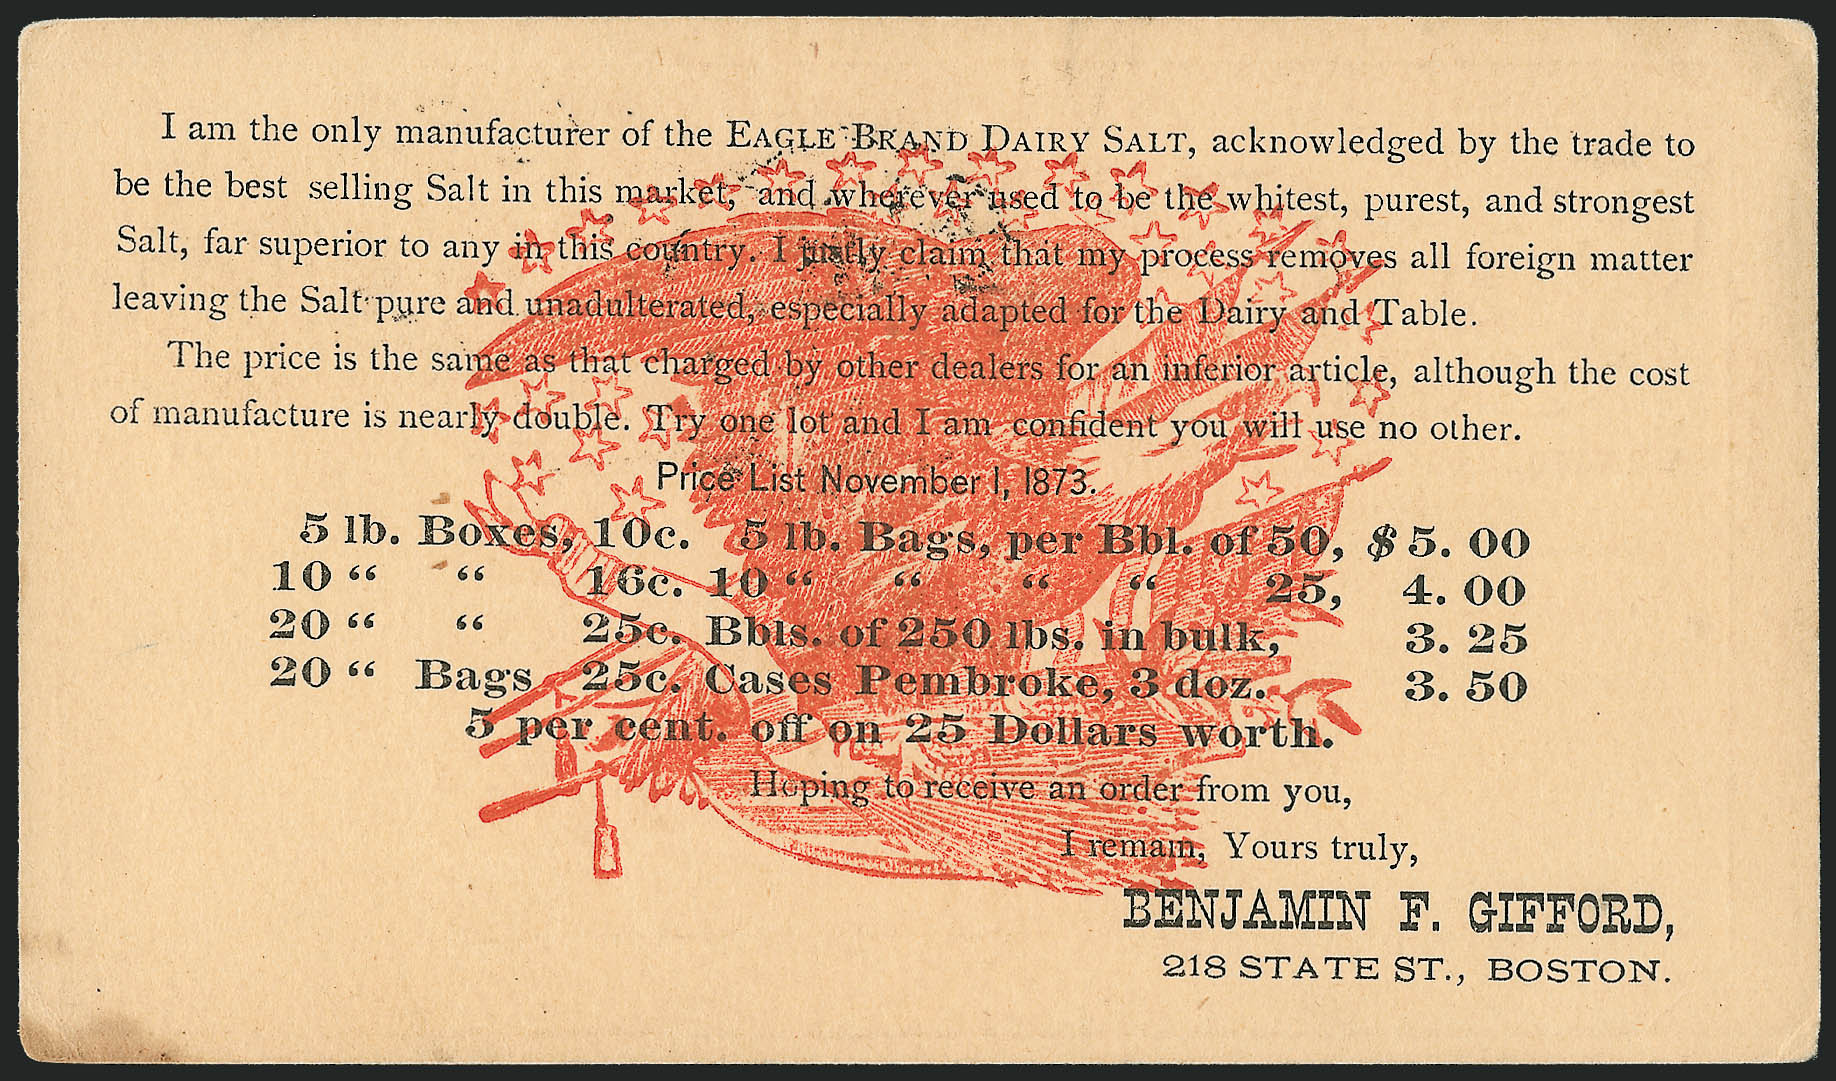 I am the only manufacturer of the EAGLE BRAND DAIRY SALT, acknowledged by the trade to
be the best selling Salt in this market, and wherever used to be the whitest, purest, and strongest
Salt, far superior to any in this country. I justly claim that my process removes all foreign matter
leaving the Salt pure and unadulterated, especially adapted for the Dairy and Table.
The price is the same as that charged by other dealers for an inferior article, although the cost
of manufacture is nearly double. Try one lot and I am confident you will use no other.
Price List November 1, 1873.
5 lb. Boxes, 10c. 5 lb. Bags, per Bbl. of 50, $5.00
10 “ “ 16c. 10 “ “ “ “ 25, 4.00
20 “ “ 25c. Bbls. of 250 lbs. in bulk, 3.25
20 “ Bags 25c. Cases Pembroke, 3 doz. 3.50
5 per cent. off on 25 Dollars worth.
Hoping to receive an order from you,
I remain, Yours truly,
BENJAMIN F. GIFFORD,
218 STATE ST., BOSTON.